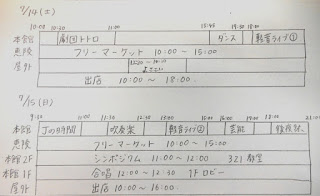 7/14(土)
10:00 10:20 11:30 15:45 19:30
本館 劇団トトロ ダンス 軽音ライブ①
恵陵 フリーマーケット 10:00～15:00
屋外
よさこい
出店 10:00～18:00
7/15(日)
9:30
本館 Jの時間 吹奏楽 軽音ライブ② 芸能 後夜祭
恵陵 フリーマーケット 10:00～15:00
本館2F シンポジウム 11:00～12:00 321教室
本館1F 合唱 12:30～12:50 1Fロビー
屋外 出店 10:00～16:00